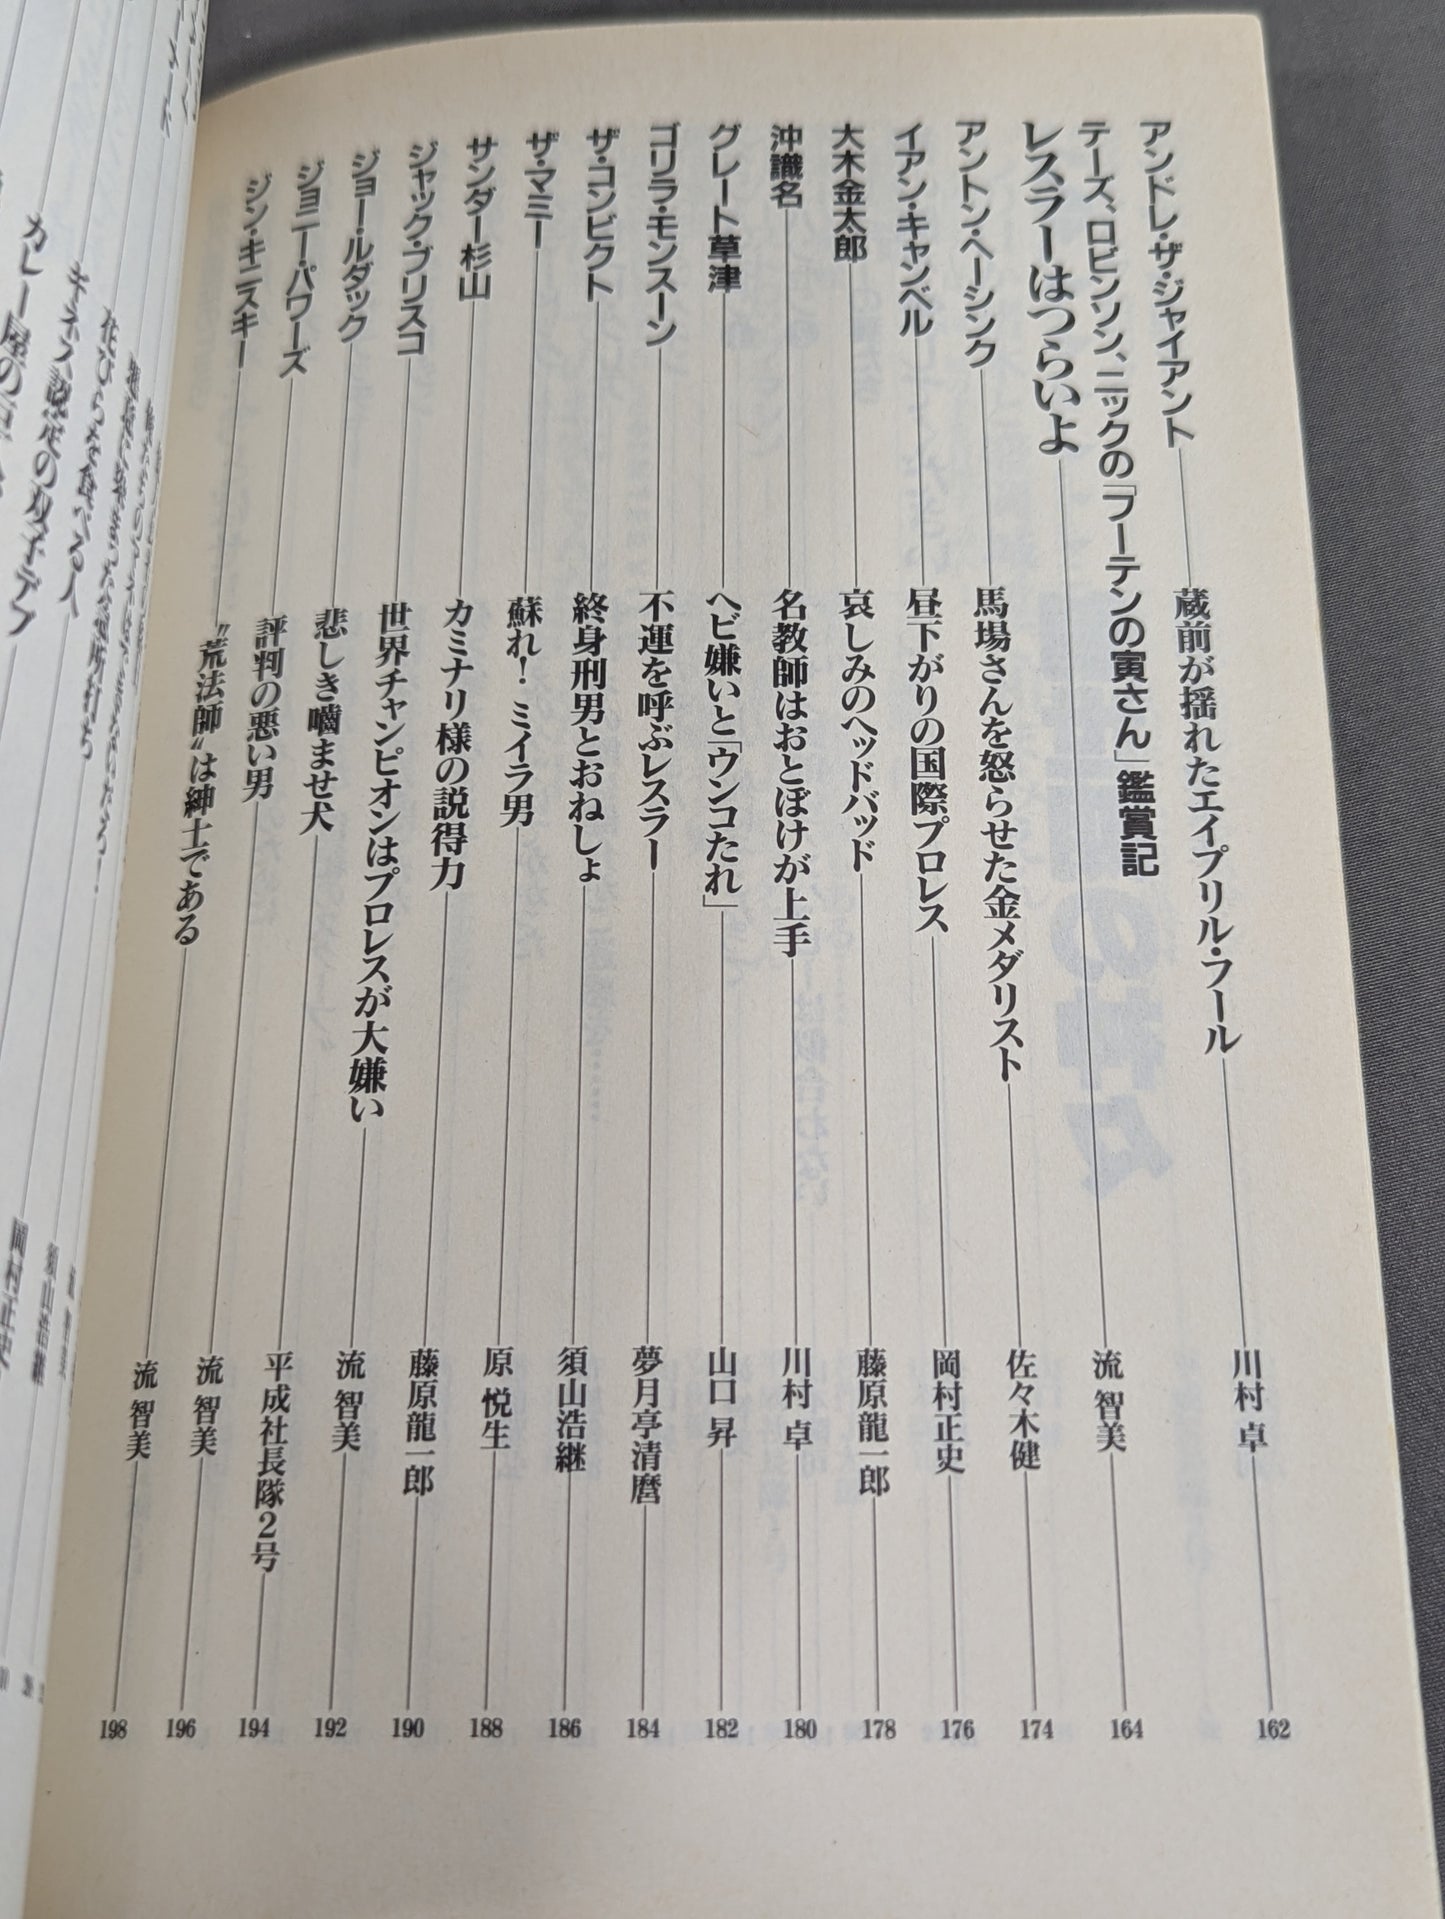 アンドレ・ザ・ジャイアント 蔵前が揺れたエイプリル・フール 川村 卓 162
テーズ、ロビンソン、ニックの「フーテンの寅さん」鑑賞記
レスラーはつらいよ 流 智美 164
アントン・ヘーシンク 馬場さんを怒らせた金メダリスト 佐々木健 174
イアン・キャンベル 昼下がりの国際プロレス 岡村正史 176
大木金太郎 哀しみのヘッドバッド 藤原龍一郎 178
沖識名 名教師はおとぼけが上手 川村 卓 180
グレート草津 ヘビ嫌いと「ウンコたれ」 山口 昇 182
ゴリラ・モンスーン 不運を呼ぶレスラー 夢月亭清麿 184
ザ・コンビクト 終身刑男とおねしょ 須山浩継 186
ザ・マミー 蘇れ！ミイラ男 原 悦生 188
サンダー杉山 カミナリ様の説得力 藤原龍一郎 190
ジャック・ブリスコ 世界チャンピオンはプロレスが大嫌い 流 智美 192
ジョー・ルダック 悲しき嚙ませ犬 平成社長隊2号 194
ジョニー・パワーズ 評判の悪い男 流 智美 196
ジン・キニスキー “荒法師”は紳士である 流 智美 198
花びらを食べる人
ギネス認定の双子デブ
須山浩継
岡村正史